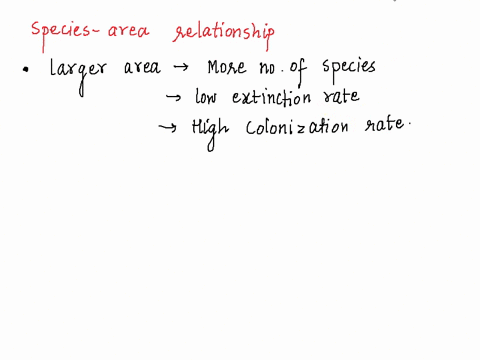 Species-area relationship
• Larger area → More no. of species
→ low extinction rate
→ High Colonization rate.